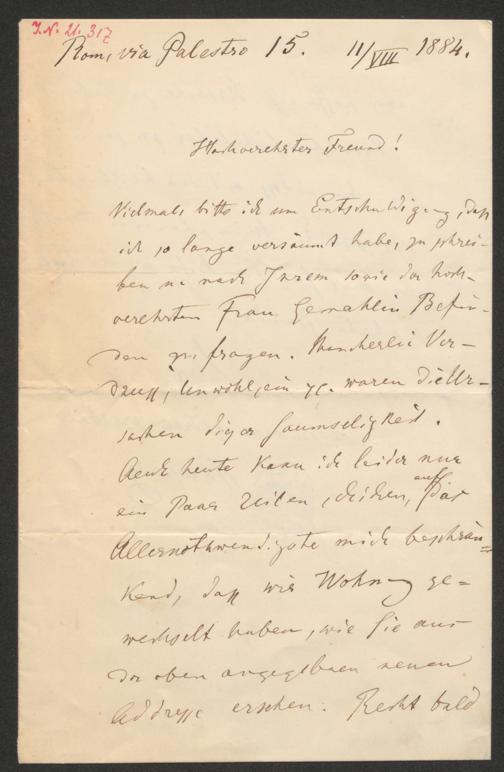 J.N. 21.317
Rom, via Palestro 15. 11/VIII 1884.
Hochverehrter Freund!
Vielmals bitte ich um Entschuldigung, daß
ich so lange versäumt habe, zu schrei-
ben u. nach Ihrem sowie der hoch-
verehrten Frau Gemahlin Befin-
den zu fragen. Mancherlei Ver-
druß, Unwohlsein etc. waren die Ur-
sachen dieser Saumseligkeit.
Auch heute kann ich leider nur
ein Paar Zeilen schicken, auf das
Allernothwendigste mich beschrän=
kend, daß wir Wohnung ge=
wechselt haben, wie Sie aus
der oben angegebenen neuen
Addresse ersehen. Recht bald